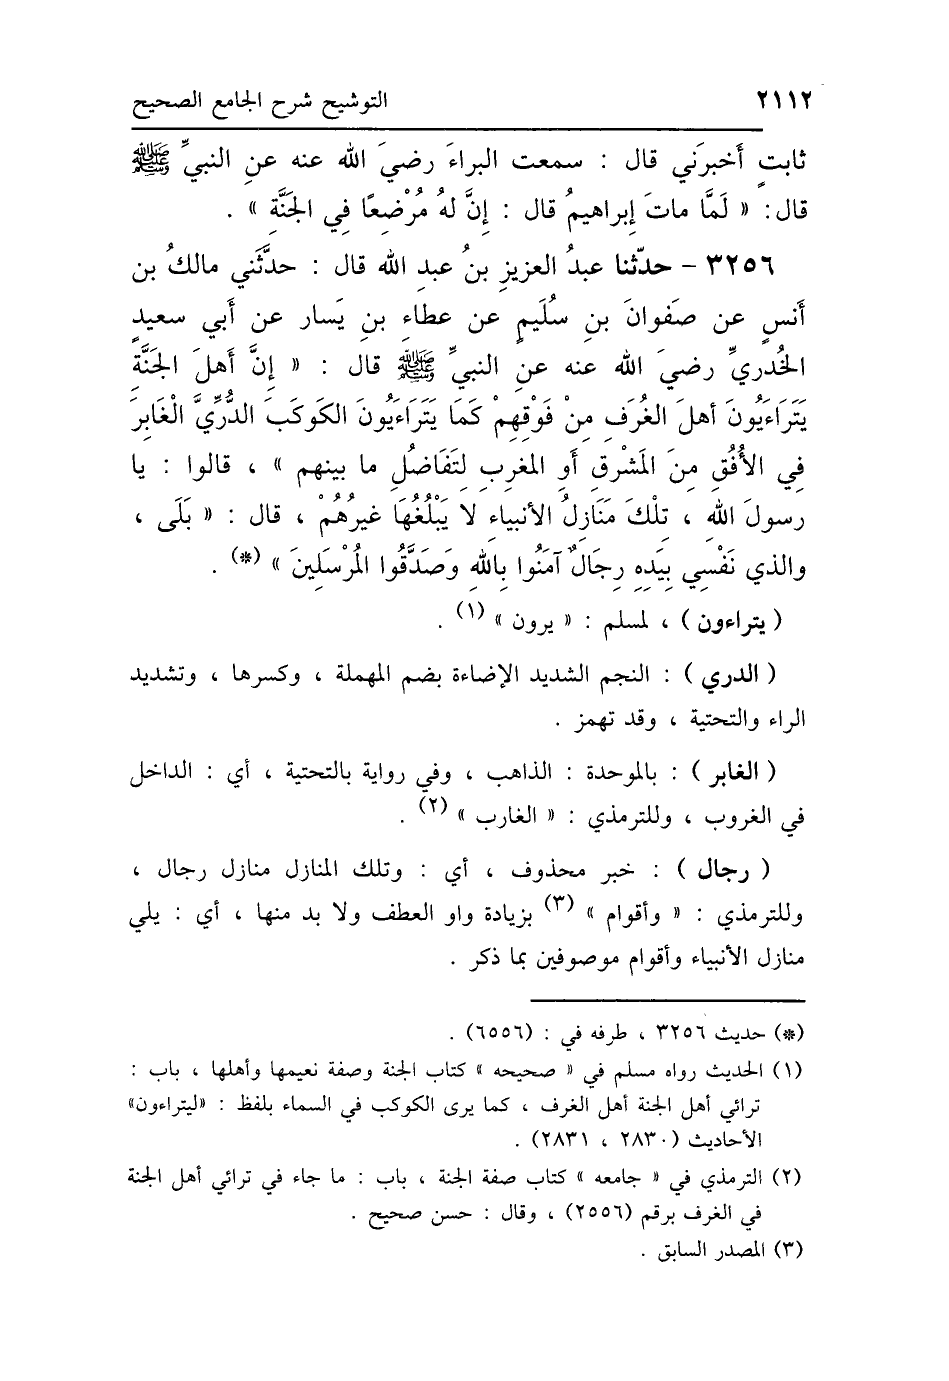 ٢١١٢ التوشيح شرح الجامع الصحيح
ثابتٍ أَخبرَني قال : سمعت البراءَ رضيَ الله عنه عنِ النبيِّ ﷺ
قال: « لَمَّا ماتَ إبراهيمُ قال : إنَّ لهُ مُرْضِعًا فِي الجَنَّةِ » .
٣٢٥٦ – حدّثنا عبدُ العزيزِ بنُ عبدِ الله قال : حدَّثَني مالكُ بن
أنسٍ عن صَفوانَ بنِ سُلَيمٍ عن عطاءِ بنِ يَسار عن أَبي سعيدٍ
الخُدريِّ رضيَ الله عنه عنِ النبيِّ ﷺ قال : « إنَّ أَهلَ الجَنَّةِ
يَتَرَاءَيُونَ أهلَ الغُرَفِ مِنْ فَوْقِهِمْ كَمَا يَتَرَاءَيُونَ الكَوكَبَ الدُّرِّيَّ الْغَابِرَ
فِي الأُفُقِ مِنَ المَشْرِقِ أو المغربِ لِتَفَاضُلِ ما بينهم » ، قالوا : يا
رسولَ اللهِ ، تِلْكَ مَنَازِلُ الأنبياءِ لا يَبْلُغُهَا غيرُهُمْ ، قال : « بَلَى ،
والذي نَفْسِي بِيَدِهِ رِجَالٌ آمَنُوا بِاللهِ وَصَدَّقُوا المُرْسَلِينَ » (*) .
( يتراءون ) ، لمسلم : « يرون » (١) .
( الدري ) : النجم الشديد الإضاءة بضم المهملة ، وكسرها ، وتشديد
الراء والتحتية ، وقد تهمز .
( الغابر ) : بالموحدة : الذاهب ، وفي رواية بالتحتية ، أي : الداخل
في الغروب ، وللترمذي : « الغارب » (٢) .
( رجال ) : خبر محذوف ، أي : وتلك المنازل منازل رجال ،
وللترمذي : « وأقوام » (٣) بزيادة واو العطف ولا بد منها ، أي : يلي
منازل الأنبياء وأقوام موصوفين بما ذكر .
(*) حديث ٣٢٥٦ ، طرفه في : (٦٥٥٦) .
(١) الحديث رواه مسلم في « صحيحه » كتاب الجنة وصفة نعيمها وأهلها ، باب :
ترائي أهل الجنة أهل الغرف ، كما يرى الكوكب في السماء بلفظ : «ليتراءون»
الأحاديث (٢٨٣٠ ، ٢٨٣١) .
(٢) الترمذي في « جامعه » كتاب صفة الجنة ، باب : ما جاء في ترائي أهل الجنة
في الغرف برقم (٢٥٥٦) ، وقال : حسن صحيح .
(٣) المصدر السابق .